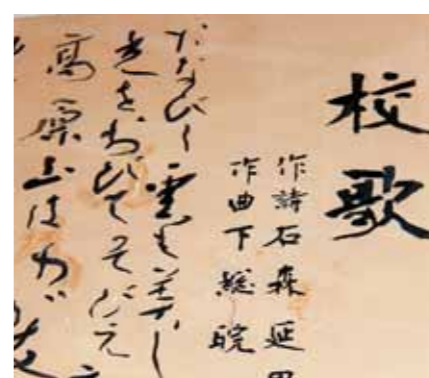 校歌
作詩石森延男
作曲下総皖
たなびく雲も美し
光をあびてそびえ
高原山はわが友